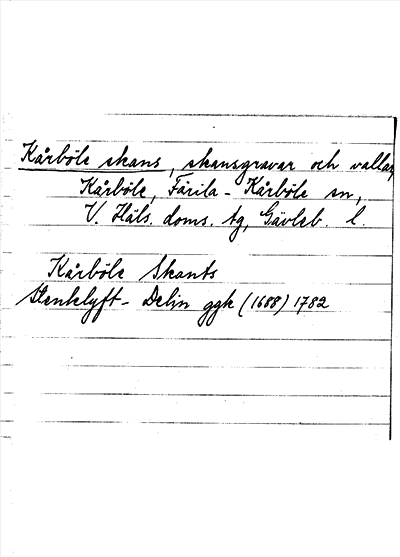 Kårböle skans, skansgravar och vallar,
Kårböle, Färila-Kårböle sn,
V. Häls. doms. tg, Gävleb. l.
Kårböle Skants
Stenklyft-Delin ggk (1688) 1782